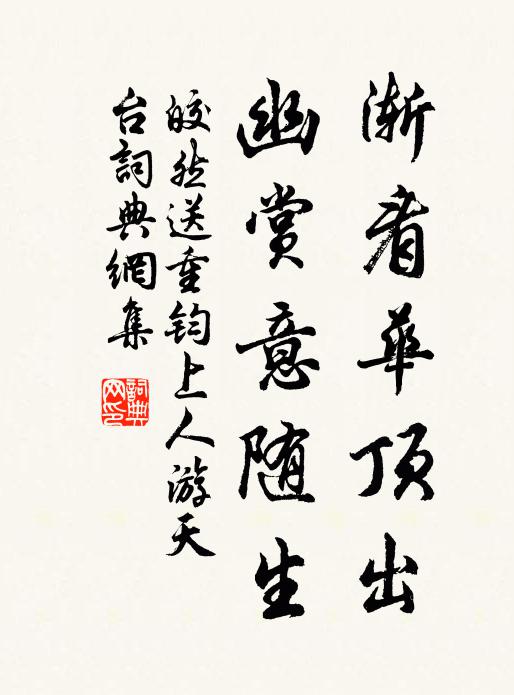 渐看華顶出
幽赏意随生
皎然送重钧上人游天
台詞典網集
詞典
网印